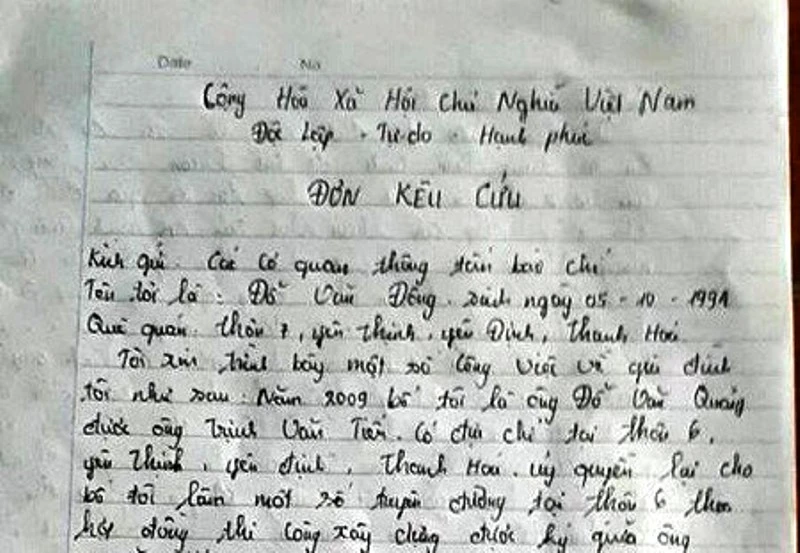 Date No
Cộng Hoà Xã Hội Chủ Nghĩa Việt Nam
Độc Lập - Tự do - Hạnh phúc
ĐƠN KÊU CỨU
Kính gửi. Các cơ quan thông tấn báo chí
Tên tôi là: Đỗ Văn Đồng. sinh ngày 05 - 10 - 1991
Quê quán. thôn 7, yên thịnh, yên Định, Thanh Hoá
Tôi xin trình bày một số công việc về gia đình
tôi như sau: Năm 2009 bố tôi là ông Đỗ Văn Quảng
được ông Trịnh Văn Tiến. Có địa chỉ tại thôn 6,
yên thịnh, yên định, Thanh Hoá. uỷ quyền lại cho
bố tôi làm một số tuyến đường tại thôn 6 theo
hợp đồng thi công xây dựng được ký giữa ông